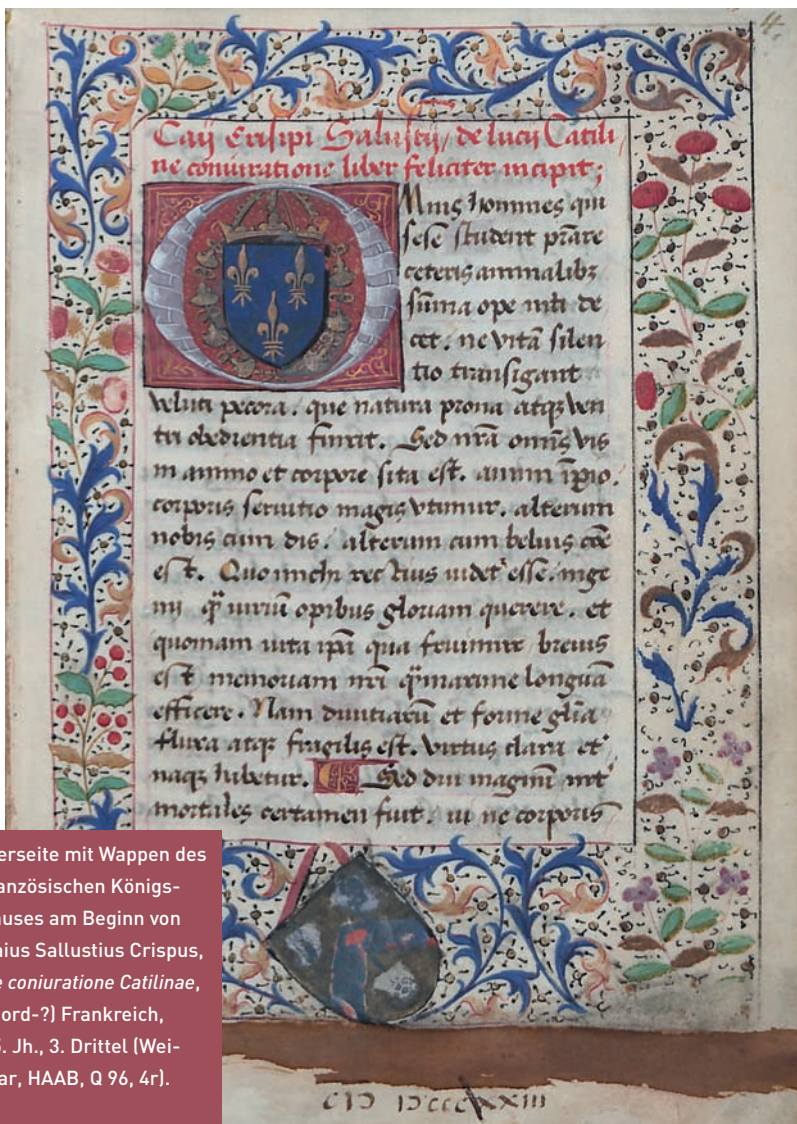 4.
Caij Crisipi Salustij / de lucij Catili /
ne coniuratione liber feliciter incipit;
O
Mnis homines qui
sese student p̄stare
ceteris animalibꝫ
sūma ope niti de
cet. ne vitā silen
tio transigant
veluti pecora. que natura prona atqꝫ ven
tri obedientia finxit. Sed nr̄a omīs vis
in animo et corpore sita est. animi īpio.
corporis seruitio magis vtimur. alterum
nobis cum dis. alterum cum beluis cōe
est. Quo michi rectius uidet' esse. inge
nij q̄ uiriū opibus gloriam querere. et
quoniam uita ip̄a qua fruimur breuis
est memoriam nr̄i q̄maxime longuā
efficere. Nam diuitiarū et forme gl̄ia
fluxa atqꝫ fragilis est. virtus clara et
naqꝫ habetur. Sed diu magnū int'
mortales certamen fuit. ui ne corporis
erseite mit Wappen des
anzösischen Königs-
auses am Beginn von
aius Sallustius Crispus,
e coniuratione Catilinae,
ord-?) Frankreich,
. Jh., 3. Drittel (Wei-
ar, HAAB, Q 96, 4r).
CIↃ IↃCCCXXIII